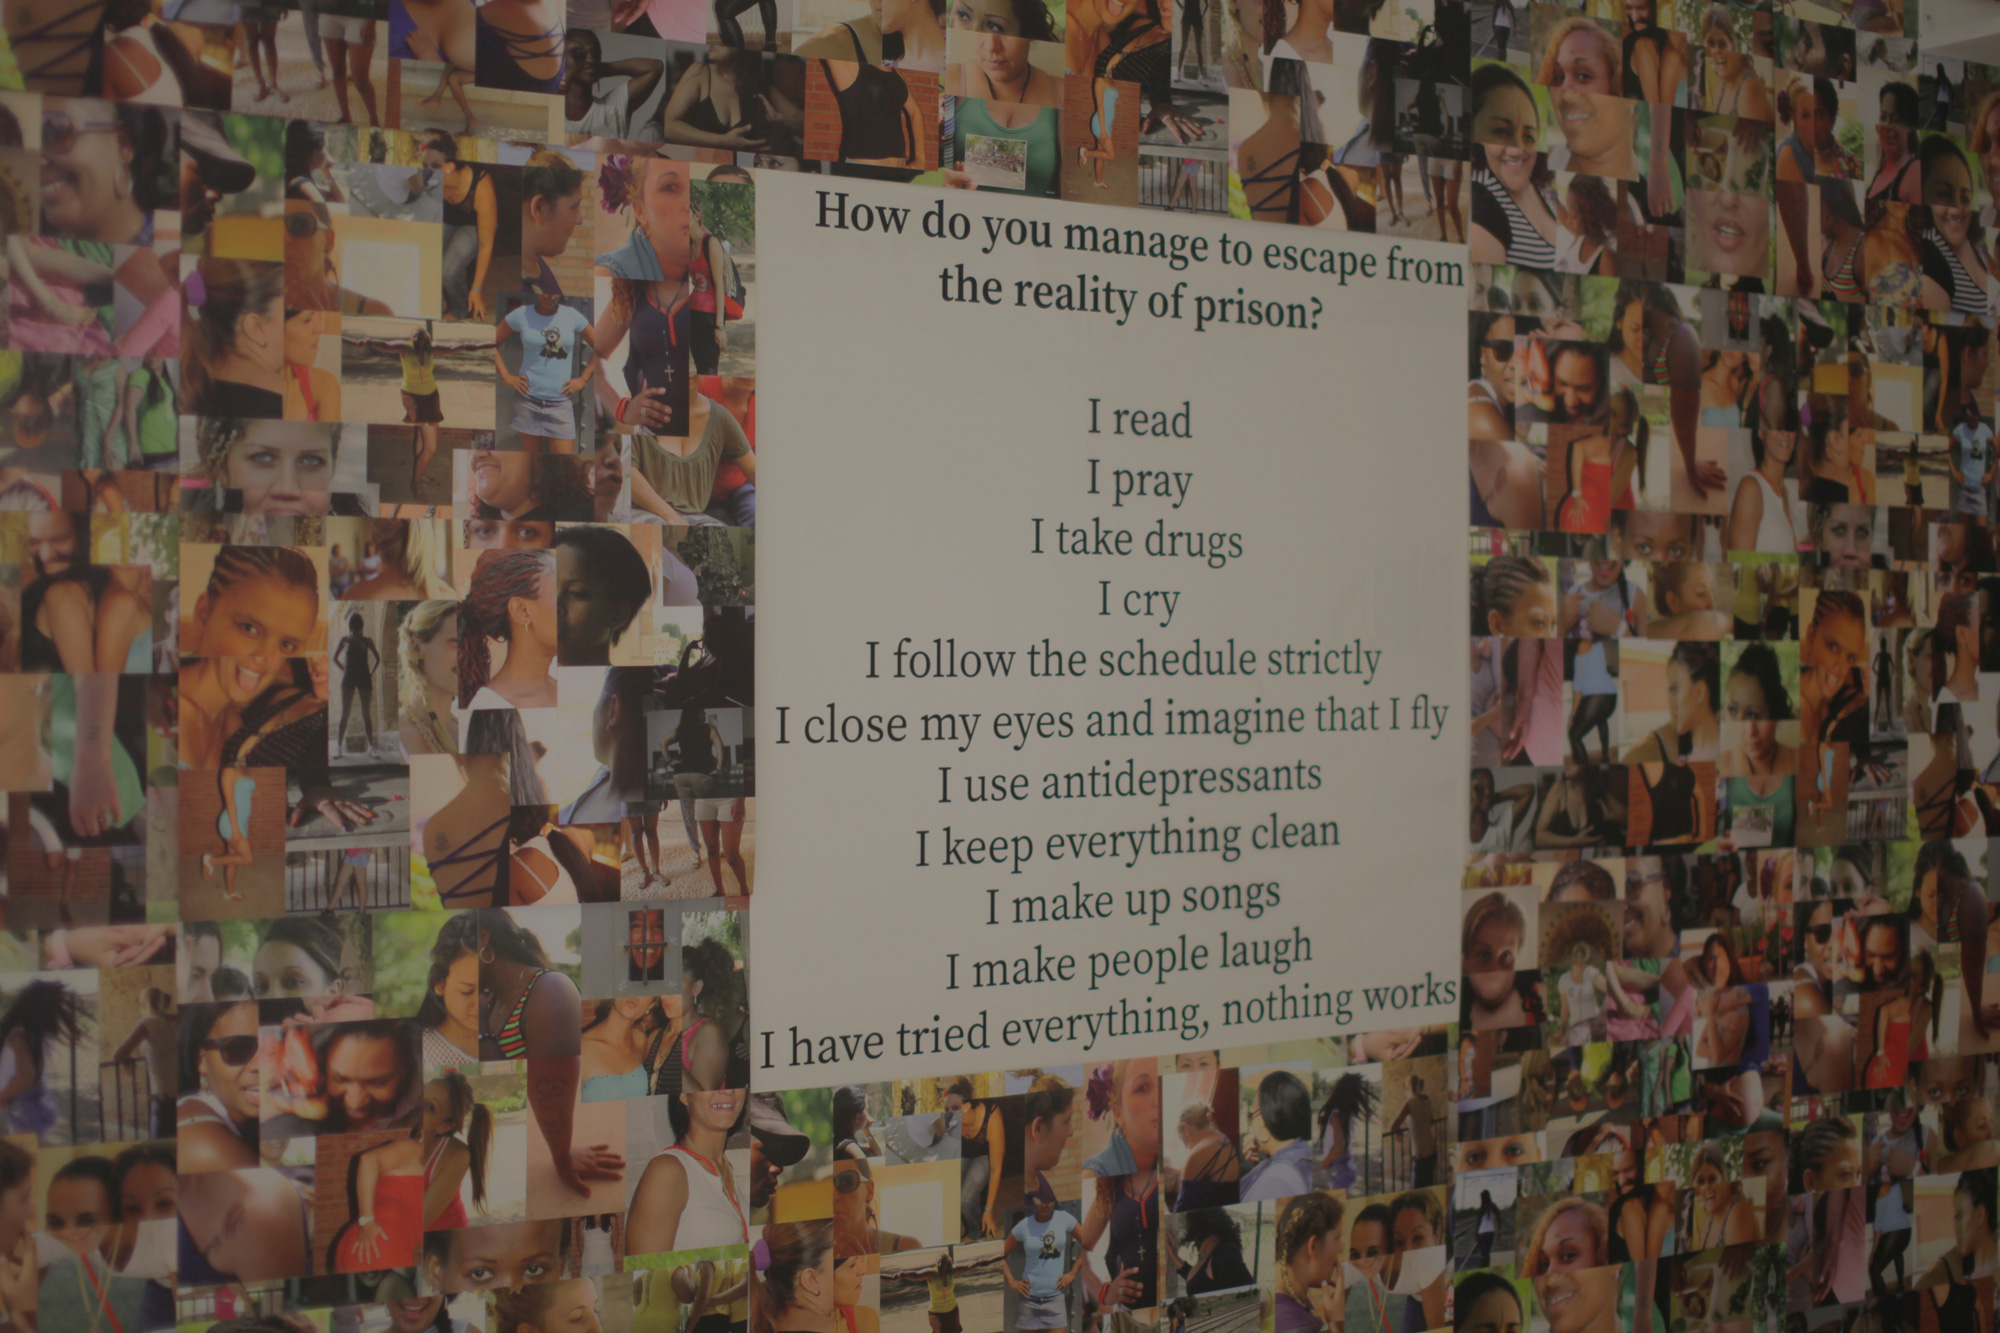 How do you manage to escape from
the reality of prison?
I read
I pray
I take drugs
I cry
I follow the schedule strictly
I close my eyes and imagine that I fly
I use antidepressants
I keep everything clean
I make up songs
I make people laugh
I have tried everything, nothing works